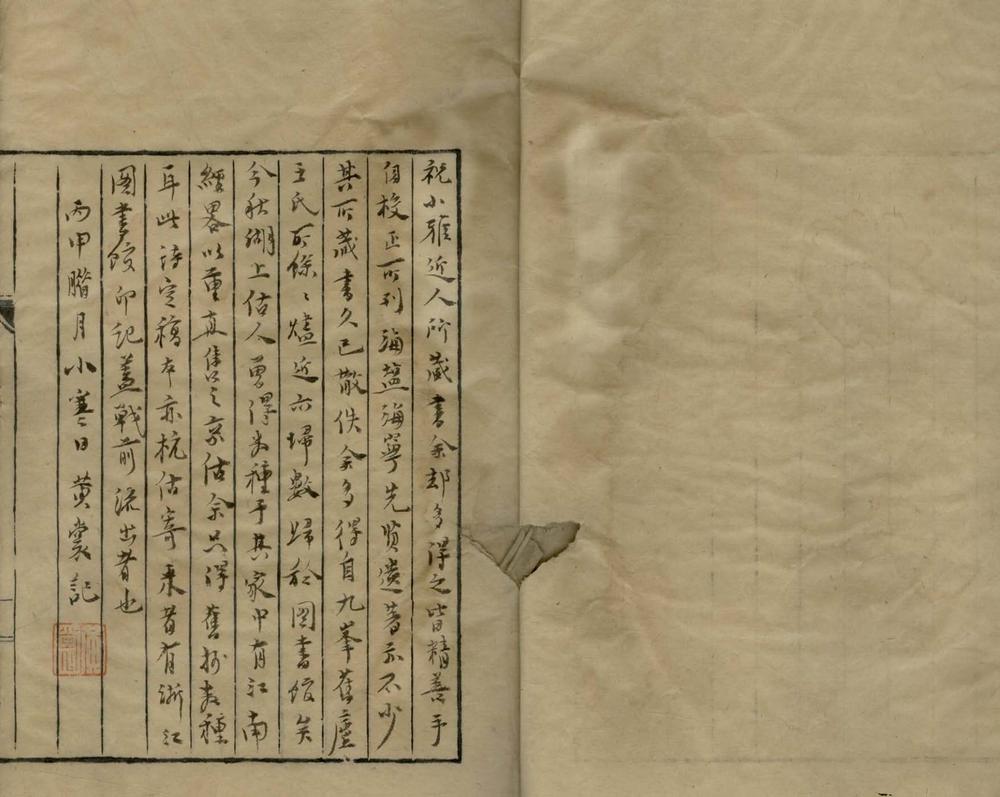 祝小雅近人所藏書余却多得之皆精善手
自校正所刊海鹽海寧先賢遺著亦不少
其所藏書久已散佚余多得自九峯舊廬
王氏所餘〻燼近亦埽數歸於圖書館矣
今秋湖上估人曾得數種于其家中有江南
經畧以重直售之京估余只得舊抄數種
耳此詩定稿本亦杭估寄來者有浙江
圖書館印記蓋戰前流出者也
丙申臘月小寒日黃裳記